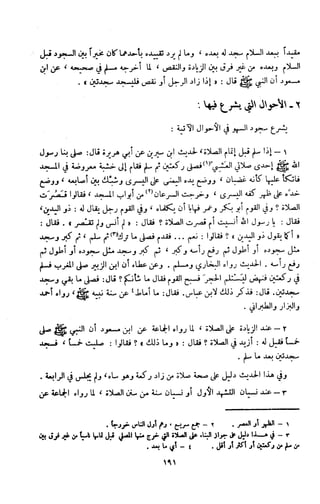 مقيداً بعد السلام سجد له بعده ، وما لم يرد تقييده بأحدهما كان مخيراً بين السجود قبل
السلام وبعده من غير فرق بين الزيادة والنقص ، لما أخرجه مسلم في صحيحه ، عن ابن
مسعود أن النبي ﷺ قال : « إذا زاد الرجل أو نقص فليسجد سجدتين » .
٢ - الأحوال التي يشرع فيها :
يشرع سجود السهو في الأحوال الآتية :
١ - إذا سلم قبل إتمام الصلاة ، لحديث ابن سيرين عن أبي هريرة قال : صلى بنا رسول
الله ﷺ إحدى صلاتي العشي(١) فصلى ركعتين ثم سلم فقام إلى خشبة معروضة في المسجد
فاتكأ عليها كأنه غضبان ، ووضع يده اليمنى على اليسرى وشبك بين أصابعه ، ووضع
خده على ظهر كفه اليسرى ، وخرجت السرعان(٢) من أبواب المسجد ، فقالوا قصرت
الصلاة ؟ وفي القوم أبو بكر وعمر فهابا أن يكلماه ، وفي القوم رجل يقال له : ذو اليدين ،
فقال : يا رسول الله أنسيت أم قصرت الصلاة ؟ فقال : « لم أنس ولم تقصر » . فقال :
« أكما يقول ذو اليدين » ؟ فقالوا : نعم ... فقدم فصلى ما ترك(٣) ثم سلم ، ثم كبر وسجد
مثل سجوده أو أطول ثم رفع رأسه وكبر ، ثم كبر وسجد مثل سجوده أو أطول ثم
رفع رأسه . الحديث رواه البخاري ومسلم . وعن عطاء أن ابن الزبير صلى المغرب فسلم
في ركعتين فنهض ليستلم الحجر فسبح القوم فقال ما شأنكم ؟ قال : فصلى ما بقي وسجد
سجدتين . قال : فذكر ذلك لابن عباس . فقال : ما أماط(٤) عن سنة نبيه ﷺ ، رواه أحمد
والبزار والطبراني .
٢ - عند الزيادة على الصلاة ، لما رواه الجماعة عن ابن مسعود أن النبي ﷺ صلى
خمساً فقيل له : أزيد في الصلاة ؟ فقال : « وما ذلك » ؟ فقالوا : صليت خمساً ، فسجد
سجدتين بعد ما سلم .
وفي هذا الحديث دليل على صحة صلاة من زاد ركعة وهو ساه ، ولم يجلس في الرابعة .
٣ - عند نسيان التشهد الأول أو نسيان سنة من سنن الصلاة ، لما رواه الجماعة عن
١ - الظهر أو العصر . ٢ - جمع سريع ، وهم أول الناس خروجاً .
٣ - في هذا دليل على جواز البناء على الصلاة التي خرج منها المصلي قبل تمامها ناسياً من غير فرق بين
من سلم من ركعتين أو أكثر أو أقل . ٤ - أي ما بعد .
١٩١